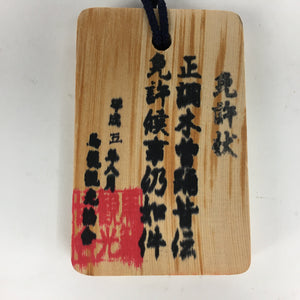 免許状
正調木曽踊皆伝
免許候事仍如件
平成五年八月
観光協会